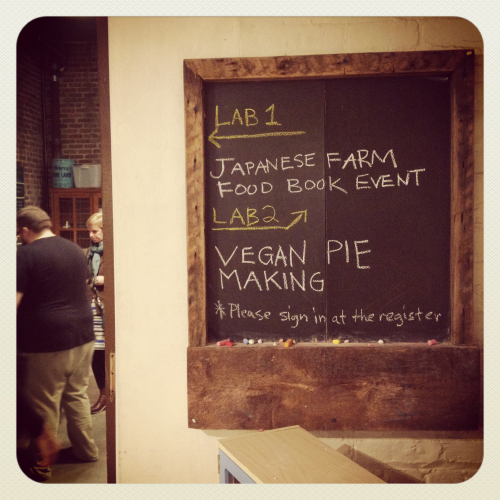 LAB 1
JAPANESE FARM
FOOD BOOK EVENT
LAB 2
VEGAN PIE
MAKING
*Please sign in at the register